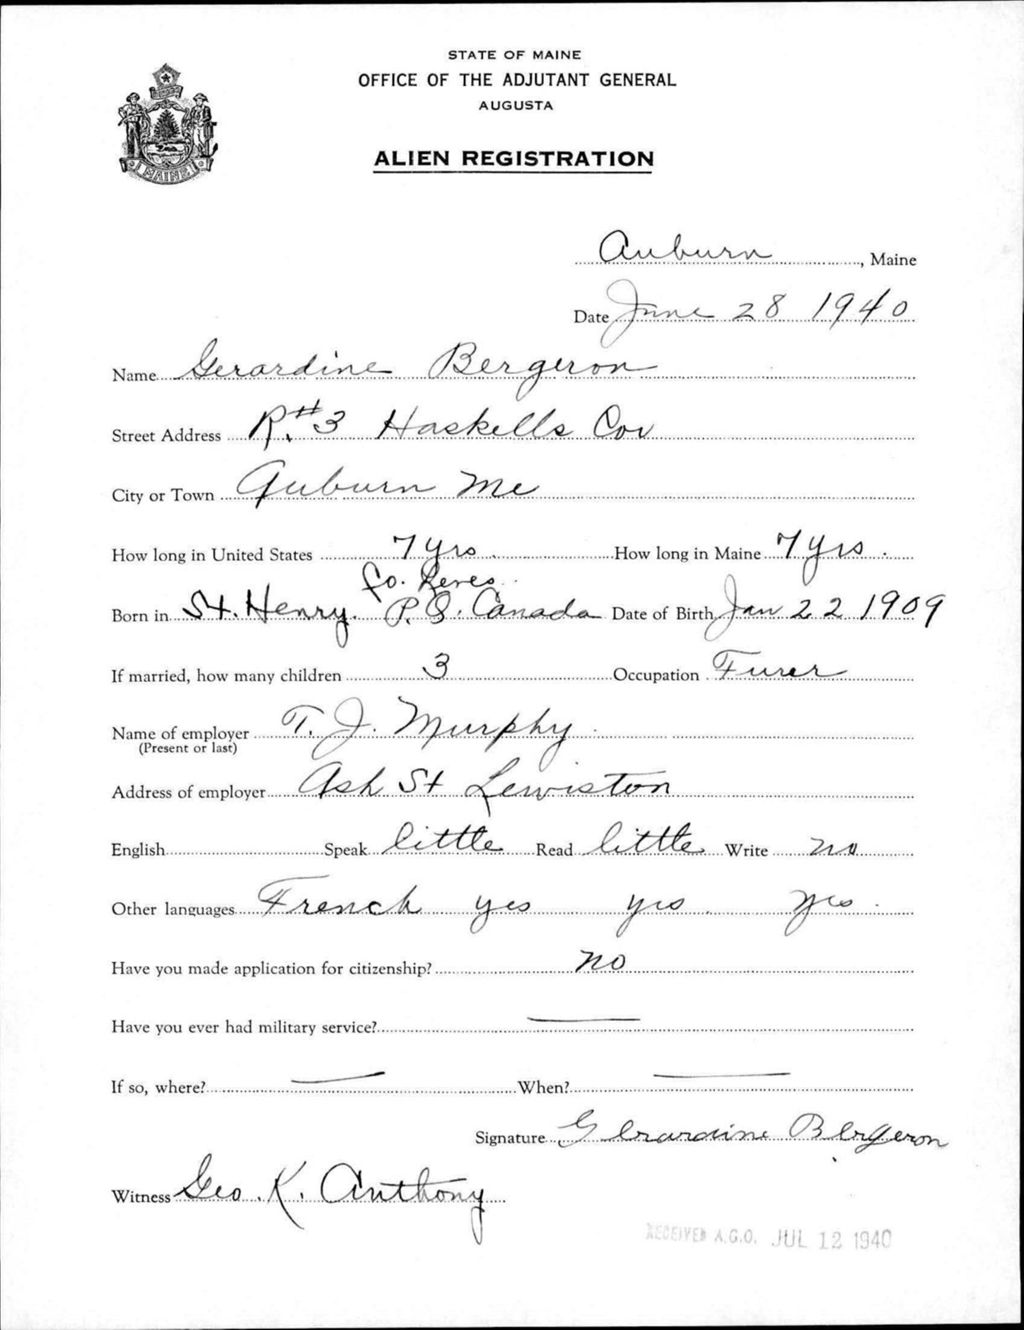 STATE OF MAINE
OFFICE OF THE ADJUTANT GENERAL
AUGUSTA
ALIEN REGISTRATION
MAINE
Auburn, Maine
Date June 28 1940
Name Gerardine Bergeron
Street Address R. #3 Haskells Cor
City or Town Auburn Me
How long in United States 7 yrs. How long in Maine 7 yrs.
Co. Leves
Born in St. Henry. P.Q. Canada Date of Birth Jan 22 1909
If married, how many children 3 Occupation Furer
Name of employer T. J. Murphy
(Present or last)
Address of employer Ash St Lewiston
English Speak little Read little Write no
Other languages French yes yes yes
Have you made application for citizenship? no
Have you ever had military service? —
If so, where? — When? —
Signature Gerardine Bergeron
Witness Geo. K. Anthony
RECEIVED A.G.O. JUL 12 1940